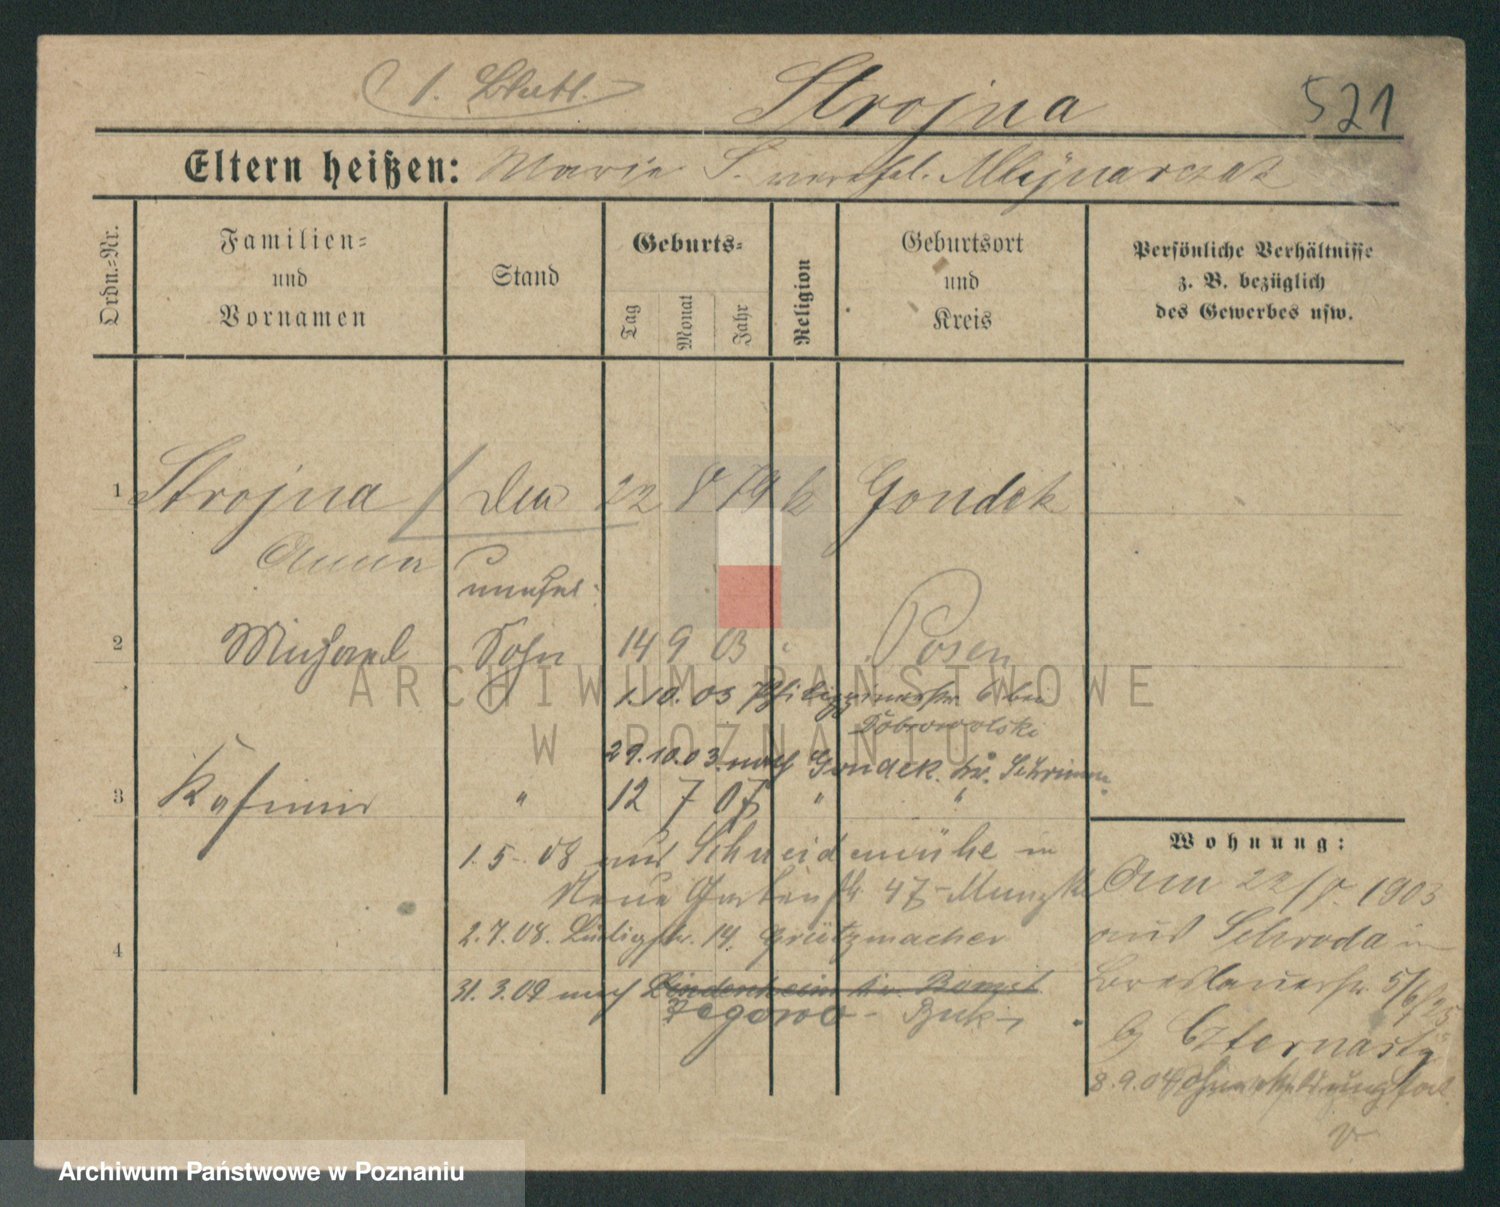 1. Blatt.
Strojna
521
Eltern heißen: Marie S. verehel. Mlynarczak
Ordn.-Nr.
Familien-
und
Vornamen
Stand
Geburts-
Tag
Monat
Jahr
Religion
Geburtsort
und
Kreis
Persönliche Verhältnisse
z. B. bezüglich
des Gewerbes usw.
1 Strojna 22 8 79 k Gondek
Anna
unehel.
2 Michael Sohn 14 9 03 " Posen
1.10.03 6 bei
Dobrowolski
29.10.03. nach Gondek. Kr. Schrimm.
3 Kasimir " 12 7 07 " "
1.5.08 aus Schneidemühe in
Neue Gartenstr 47
2.7.08. 14. Grützmacher
31.3.09 nach Lindenheim Kr. Bomst
Zegowo - Buk
4
Wohnung:
Am 22/8. 1903
aus Schroda in
Breslauerstr. 5/6
b/ Czternasty
8.9.04 ohne Meldung fort
ARCHIWUM PAŃSTWOWE
W POZNANIU
Archiwum Państwowe w Poznaniu